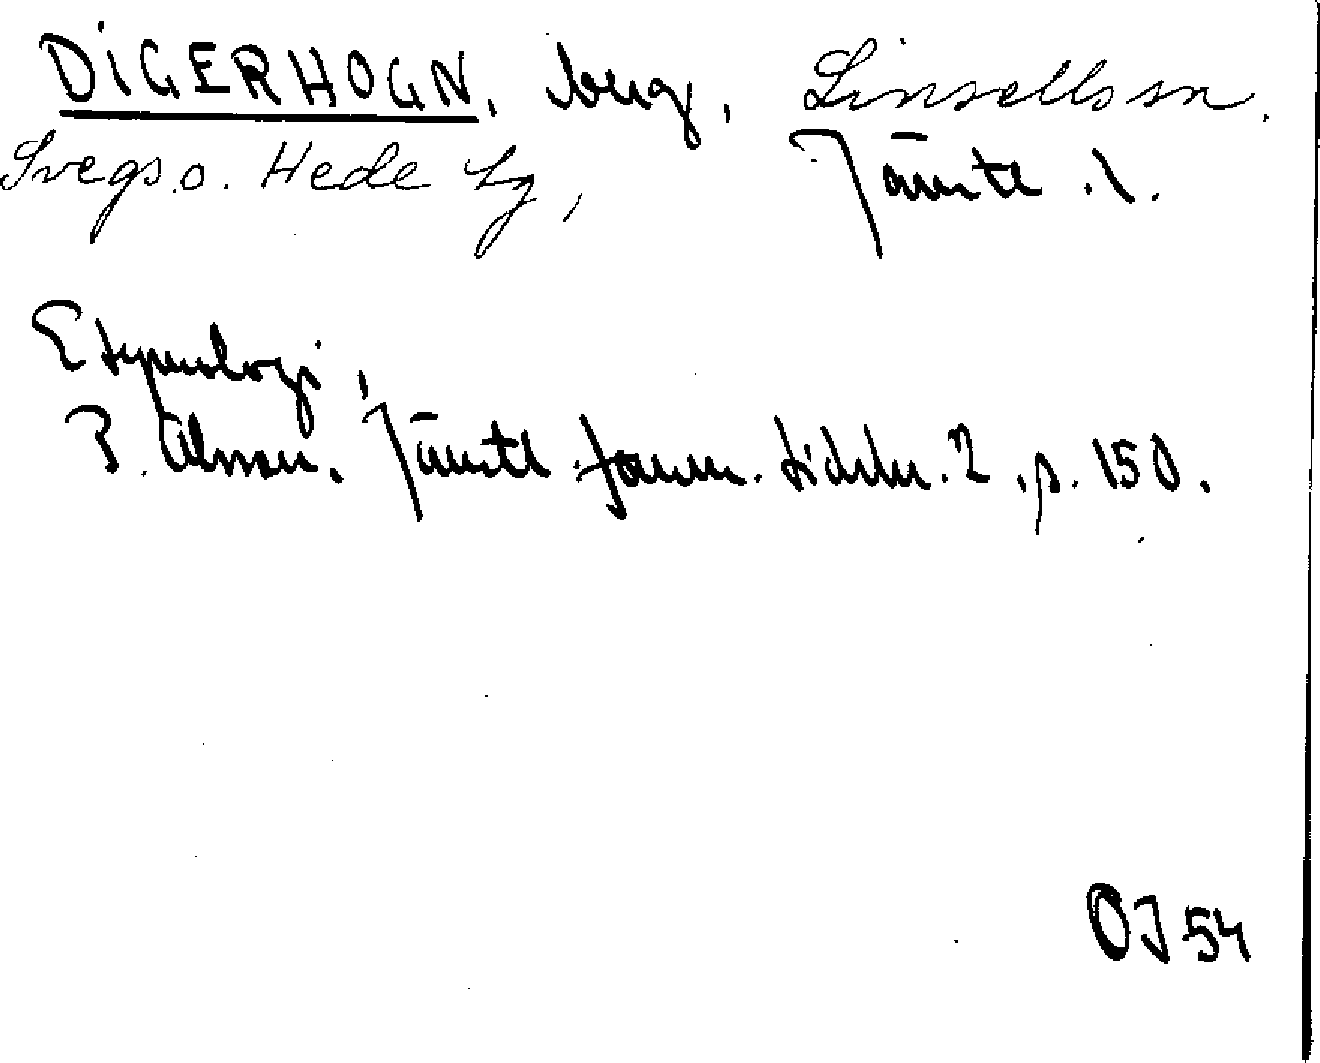 DIGERHOGN, berg, Linsells sn.
Svegs o. Hede tg, Jämtl. l.
Etymologi,
P. Olsson. Jämtl. fornm. tidskr. 2, p. 150.
OJ 54